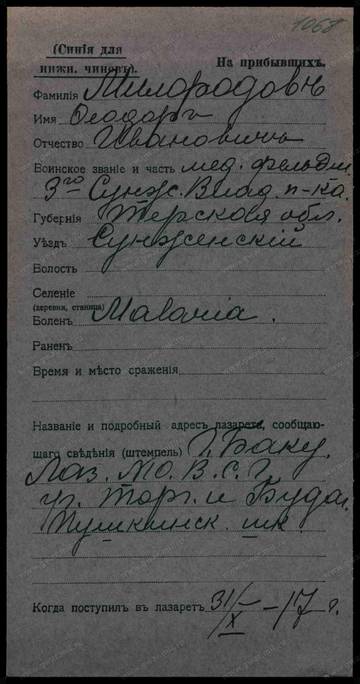 1068
(Синія для
нижн. чиновъ).
На прибывшихъ.
Фамилія Милородовъ
Имя Ѳеодоръ
Отчество Ивановичъ
Воинское званіе и часть мед. фельдш.
3го Сунж. Влад. п-ка.
Губернія Терская обл.
Уѣздъ Сунженскій
Волость
Селеніе
(деревня, станица)
Боленъ Malaria.
Раненъ
Время и мѣсто сраженія
Названіе и подробный адресъ лазарета, сообщаю-
щаго свѣдѣнія (штемпель) г. Баку.
Лаз. В. С. Г.
ул. Торг. и Будаг.
Пушкинск. шк.
Когда поступилъ въ лазаретъ 31/X – 17 г.